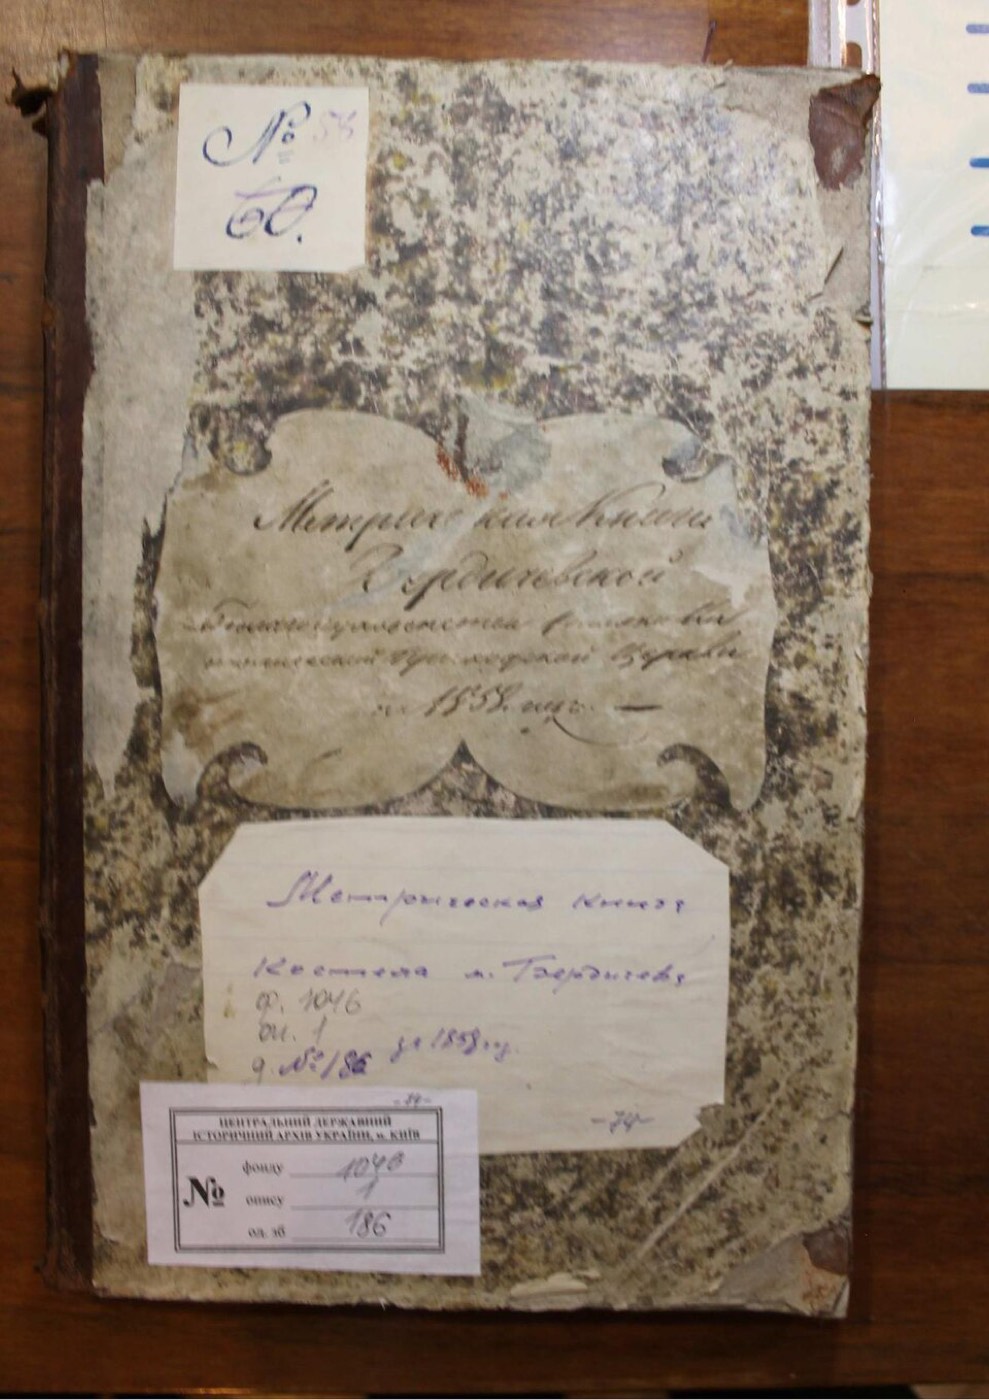 № 58
60.
Метрическая Книга
Бердичевской
Приходской Церкви
1858 году
Метрическая книга
Костела м. Бердичева
ф. 1046
оп. 1
за 1858 г.
д. № 186
-74-
-74-
ЦЕНТРАЛЬНИЙ ДЕРЖАВНИЙ
ІСТОРИЧНИЙ АРХІВ УКРАЇНИ, м. КИЇВ
№
фонду 1046
опису 1
од. зб 186